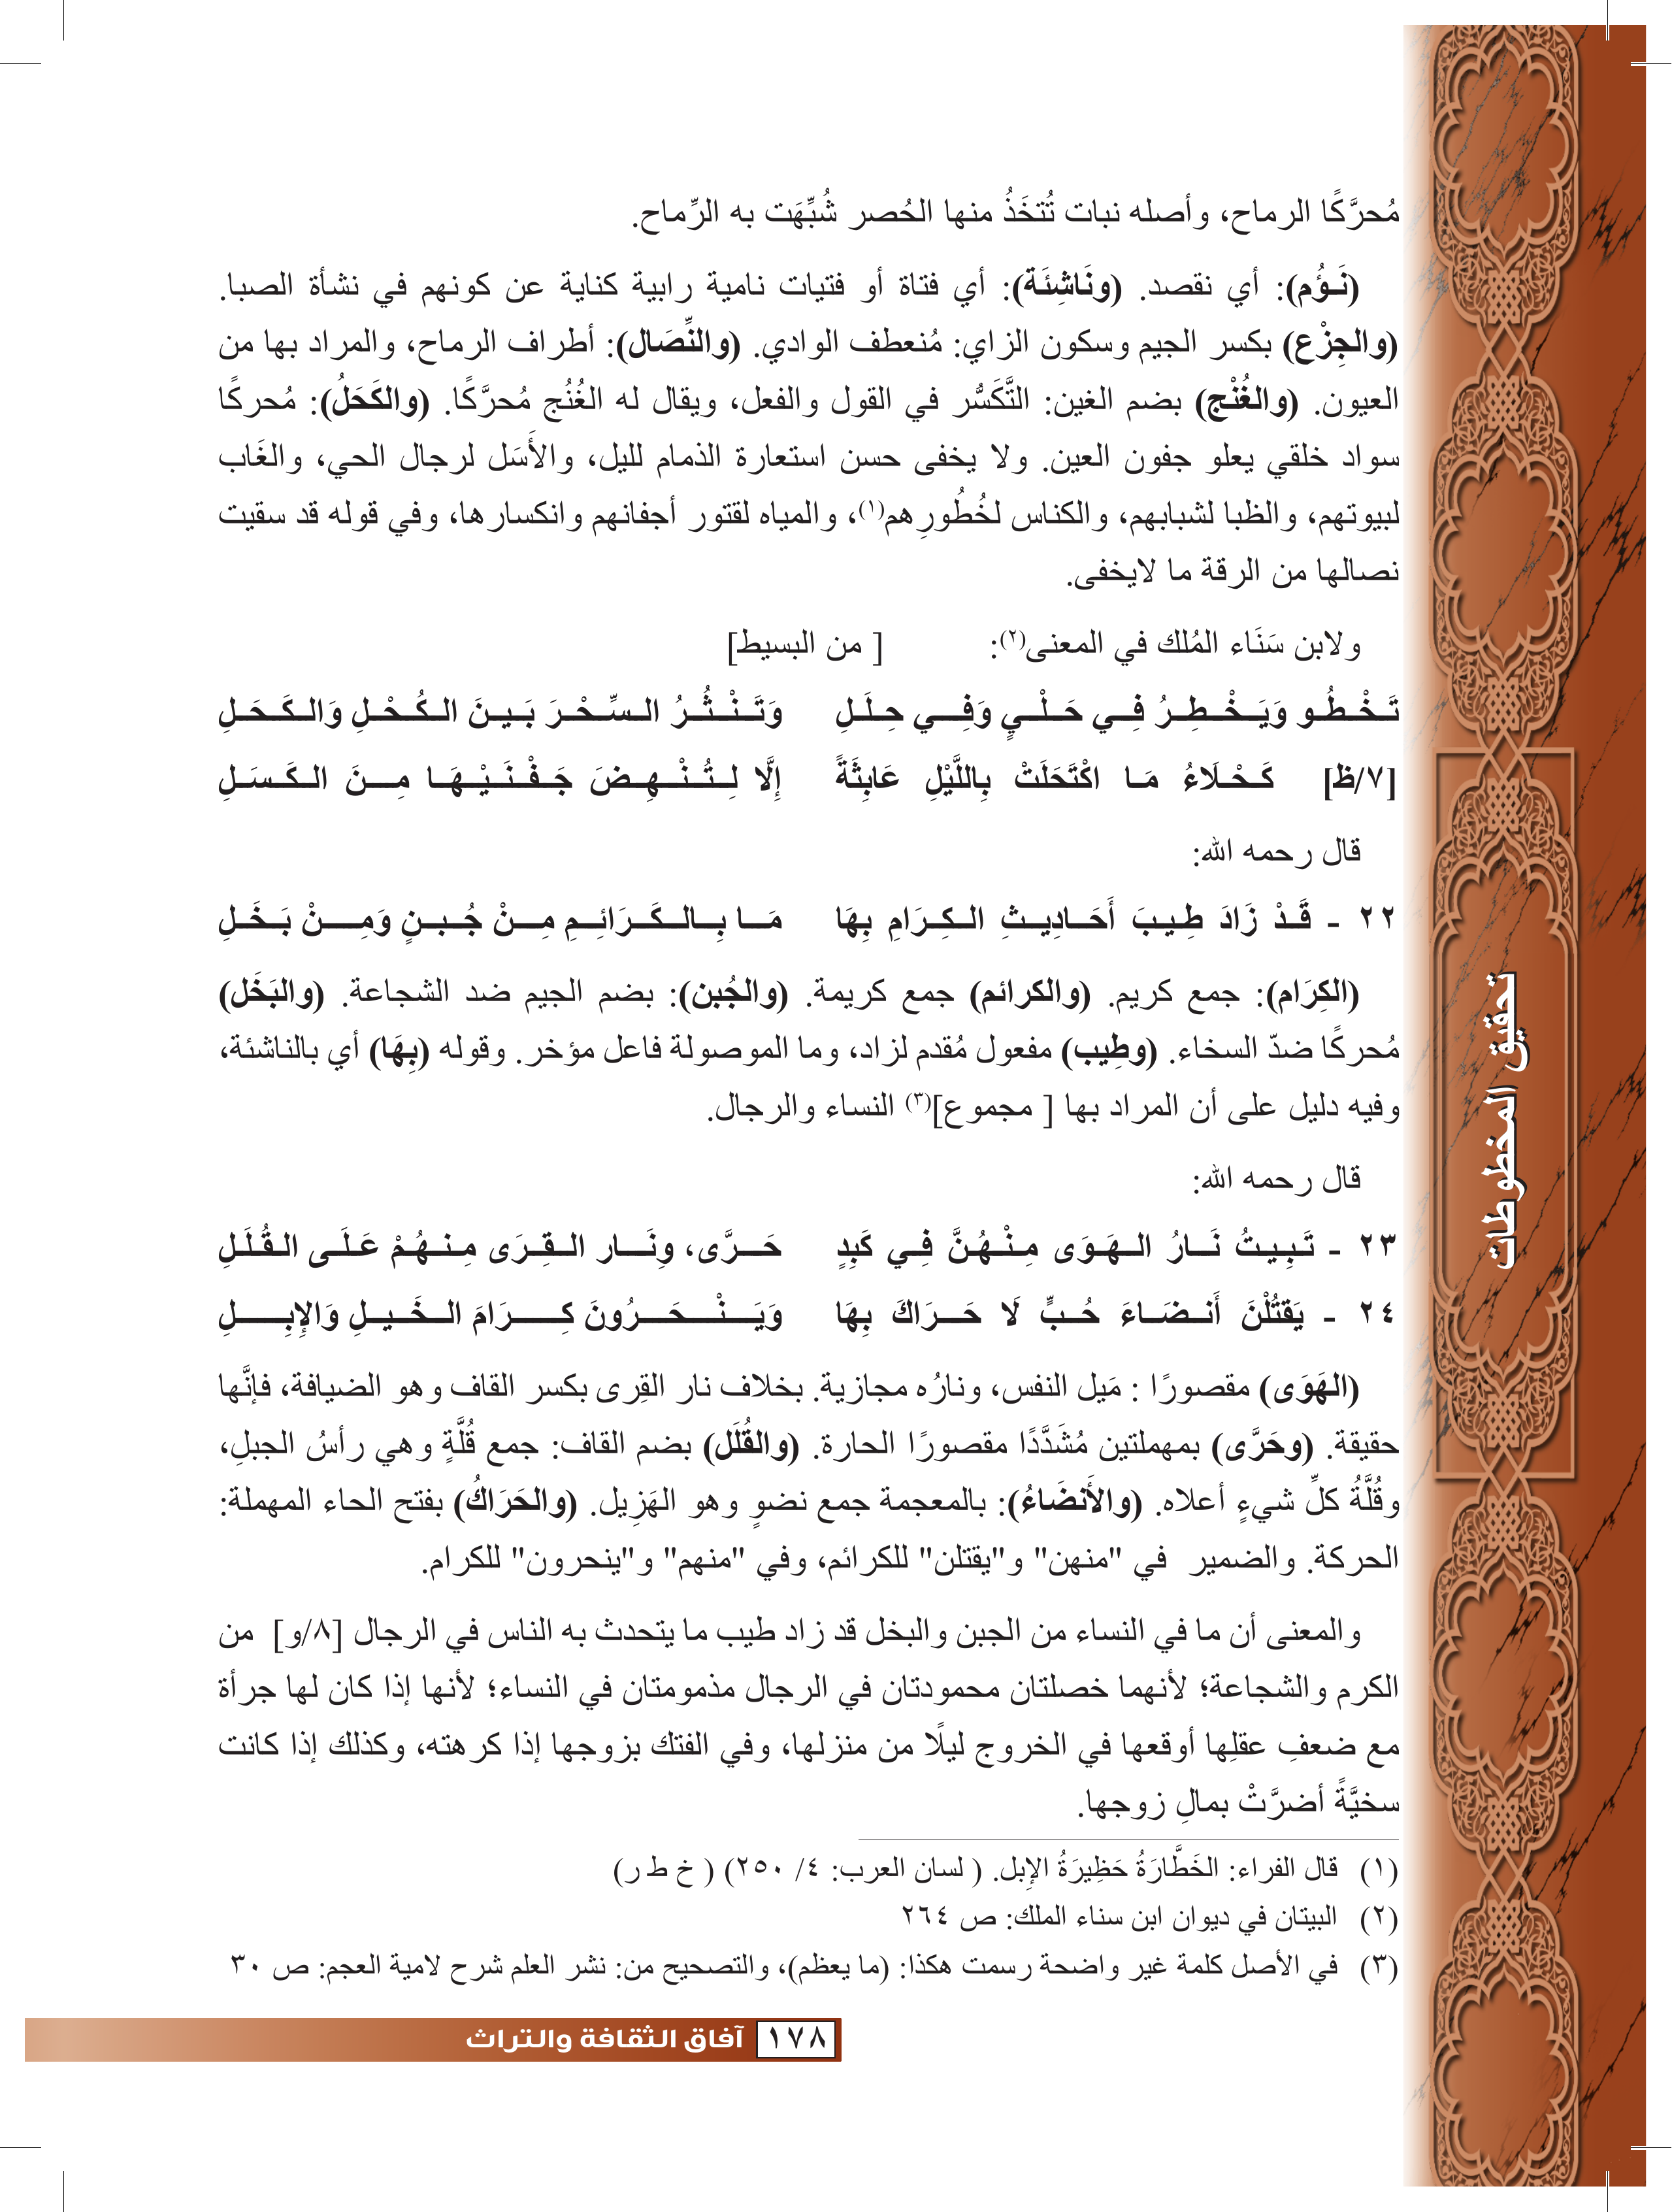 مُحرَّكًا الرماح، وأصله نبات تُتخَذُ منها الحُصر شُبِّهَت به الرِّماح.
(نَـؤُم): أي نقصد. (ونَاشِئَة): أي فتاة أو فتيات نامية رابية كناية عن كونهم في نشأة الصبا.
(والجِزْع) بكسر الجيم وسكون الزاي: مُنعطف الوادي. (والنِّصَال): أطراف الرماح، والمراد بها من
العيون. (والغُنْج) بضم الغين: التَّكَسُّر في القول والفعل، ويقال له الغُنُج مُحرَّكًا. (والكَحَلُ): مُحركًا
سواد خلقي يعلو جفون العين. ولا يخفى حسن استعارة الذمام لليل، والأَسَل لرجال الحي، والغَاب
لبيوتهم، والظبا لشبابهم، والكناس لخُطُورِهم(١)، والمياه لقتور أجفانهم وانكسارها، وفي قوله قد سقيت
نصالها من الرقة ما لايخفى.
ولابن سَنَاء المُلك في المعنى(٢): [ من البسيط]
تَخْطُو وَيَخْطِرُ فِي حَلْيٍ وَفِي حِلَلِ وَتَنْثُرُ السِّحْرَ بَينَ الكُحْلِ وَالكَحَلِ
[٧/ظ] كَحْلَاءُ مَا اكْتَحَلَتْ بِاللَّيْلِ عَابِثَةً إِلَّا لِتُنْهِضَ جَفْنَيْهَا مِنَ الكَسَلِ
قال رحمه الله:
٢٢ - قَدْ زَادَ طِيبَ أَحَادِيثِ الكِرَامِ بِهَا مَا بِالكَرَائِمِ مِنْ جُبنٍ وَمِنْ بَخَلِ
(الكِرَام): جمع كريم. (والكرائم) جمع كريمة. (والجُبن): بضم الجيم ضد الشجاعة. (والبَخَل)
مُحركًا ضدّ السخاء. (وطِيب) مفعول مُقدم لزاد، وما الموصولة فاعل مؤخر. وقوله (بِهَا) أي بالناشئة،
وفيه دليل على أن المراد بها [ مجموع](٣) النساء والرجال.
قال رحمه الله:
٢٣ - تَبِيتُ نَارُ الهَوَى مِنْهُنَّ فِي كَبِدٍ حَرَّى، وِنَار القِرَى مِنهُمْ عَلَى القُلَلِ
٢٤ - يَقتُلْنَ أَنضَاءَ حُبٍّ لَا حَرَاكَ بِهَا وَيَنْحَرُونَ كِرَامَ الخَيلِ وَالإِبِلِ
(الهَوَى) مقصورًا : مَيل النفس، ونارُه مجازية. بخلاف نار القِرى بكسر القاف وهو الضيافة، فإنَّها
حقيقة. (وحَرَّى) بمهملتين مُشَدَّدًا مقصورًا الحارة. (والقُلَل) بضم القاف: جمع قُلَّةٍ وهي رأسُ الجبلِ،
وقُلَّةُ كلِّ شيءٍ أعلاه. (والأَنضَاءُ): بالمعجمة جمع نضوٍ وهو الهَزِيل. (والحَرَاكُ) بفتح الحاء المهملة:
الحركة. والضمير في "منهن" و"يقتلن" للكرائم، وفي "منهم" و"ينحرون" للكرام.
والمعنى أن ما في النساء من الجبن والبخل قد زاد طيب ما يتحدث به الناس في الرجال [٨/و] من
الكرم والشجاعة؛ لأنهما خصلتان محمودتان في الرجال مذمومتان في النساء؛ لأنها إذا كان لها جرأة
مع ضعفِ عقلِها أوقعها في الخروج ليلًا من منزلها، وفي الفتك بزوجها إذا كرهته، وكذلك إذا كانت
سخيَّةً أضرَّتْ بمالِ زوجها.
(١) قال الفراء: الخَطَّارَةُ حَظِيرَةُ الإِبل. ( لسان العرب: ٤/ ٢٥٠) ( خ ط ر)
(٢) البيتان في ديوان ابن سناء الملك: ص ٢٦٤
(٣) في الأصل كلمة غير واضحة رسمت هكذا: (ما يعظم)، والتصحيح من: نشر العلم شرح لامية العجم: ص ٣٠
١٧٨ آفاق الثقافة والتراث
تحقيق المخطوطات